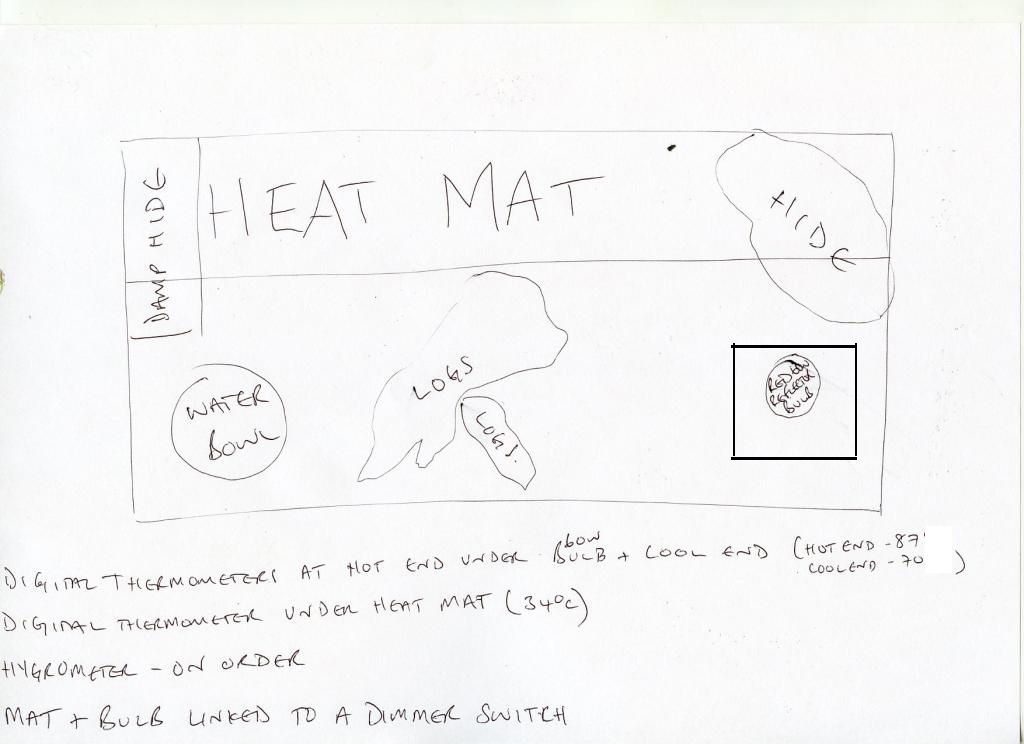 DAMP HIDE
HEAT MAT
HIDE
LOGS
LOGS.
WATER
BOWL
RED 60W
REFLECTOR
BULB
DIGITAL THERMOMETERS AT HOT END UNDER 60W BULB + COOL END (HOT END - 87°
COOL END - 70 )
DIGITAL THERMOMETER UNDER HEAT MAT (34°C)
HYGROMETER - ON ORDER
MAT + BULB LINKED TO A DIMMER SWITCH